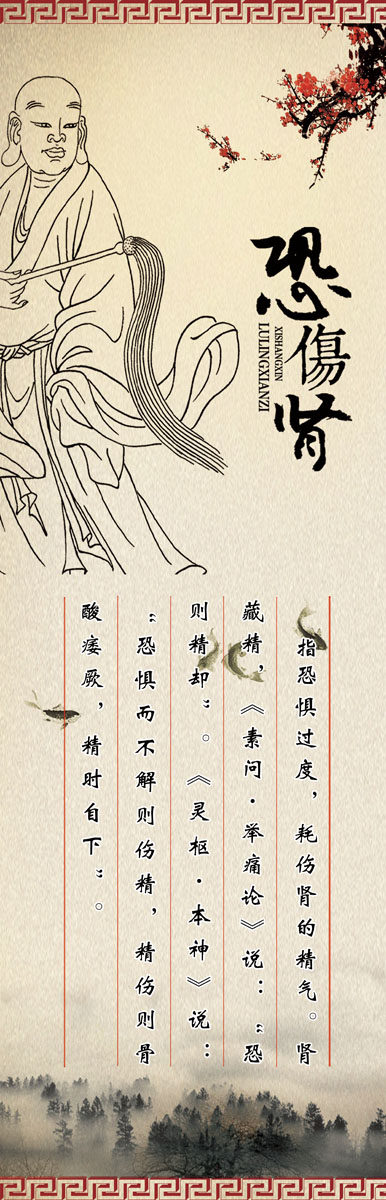 恐傷肾
XISHANGXIN
LULINGXIANZI
指恐惧过度，耗伤肾的精气。肾
藏精，《素问·举痛论》说：“恐
则精却”。《灵枢·本神》说：
“恐惧而不解则伤精，精伤则骨
酸痿厥，精时自下”。